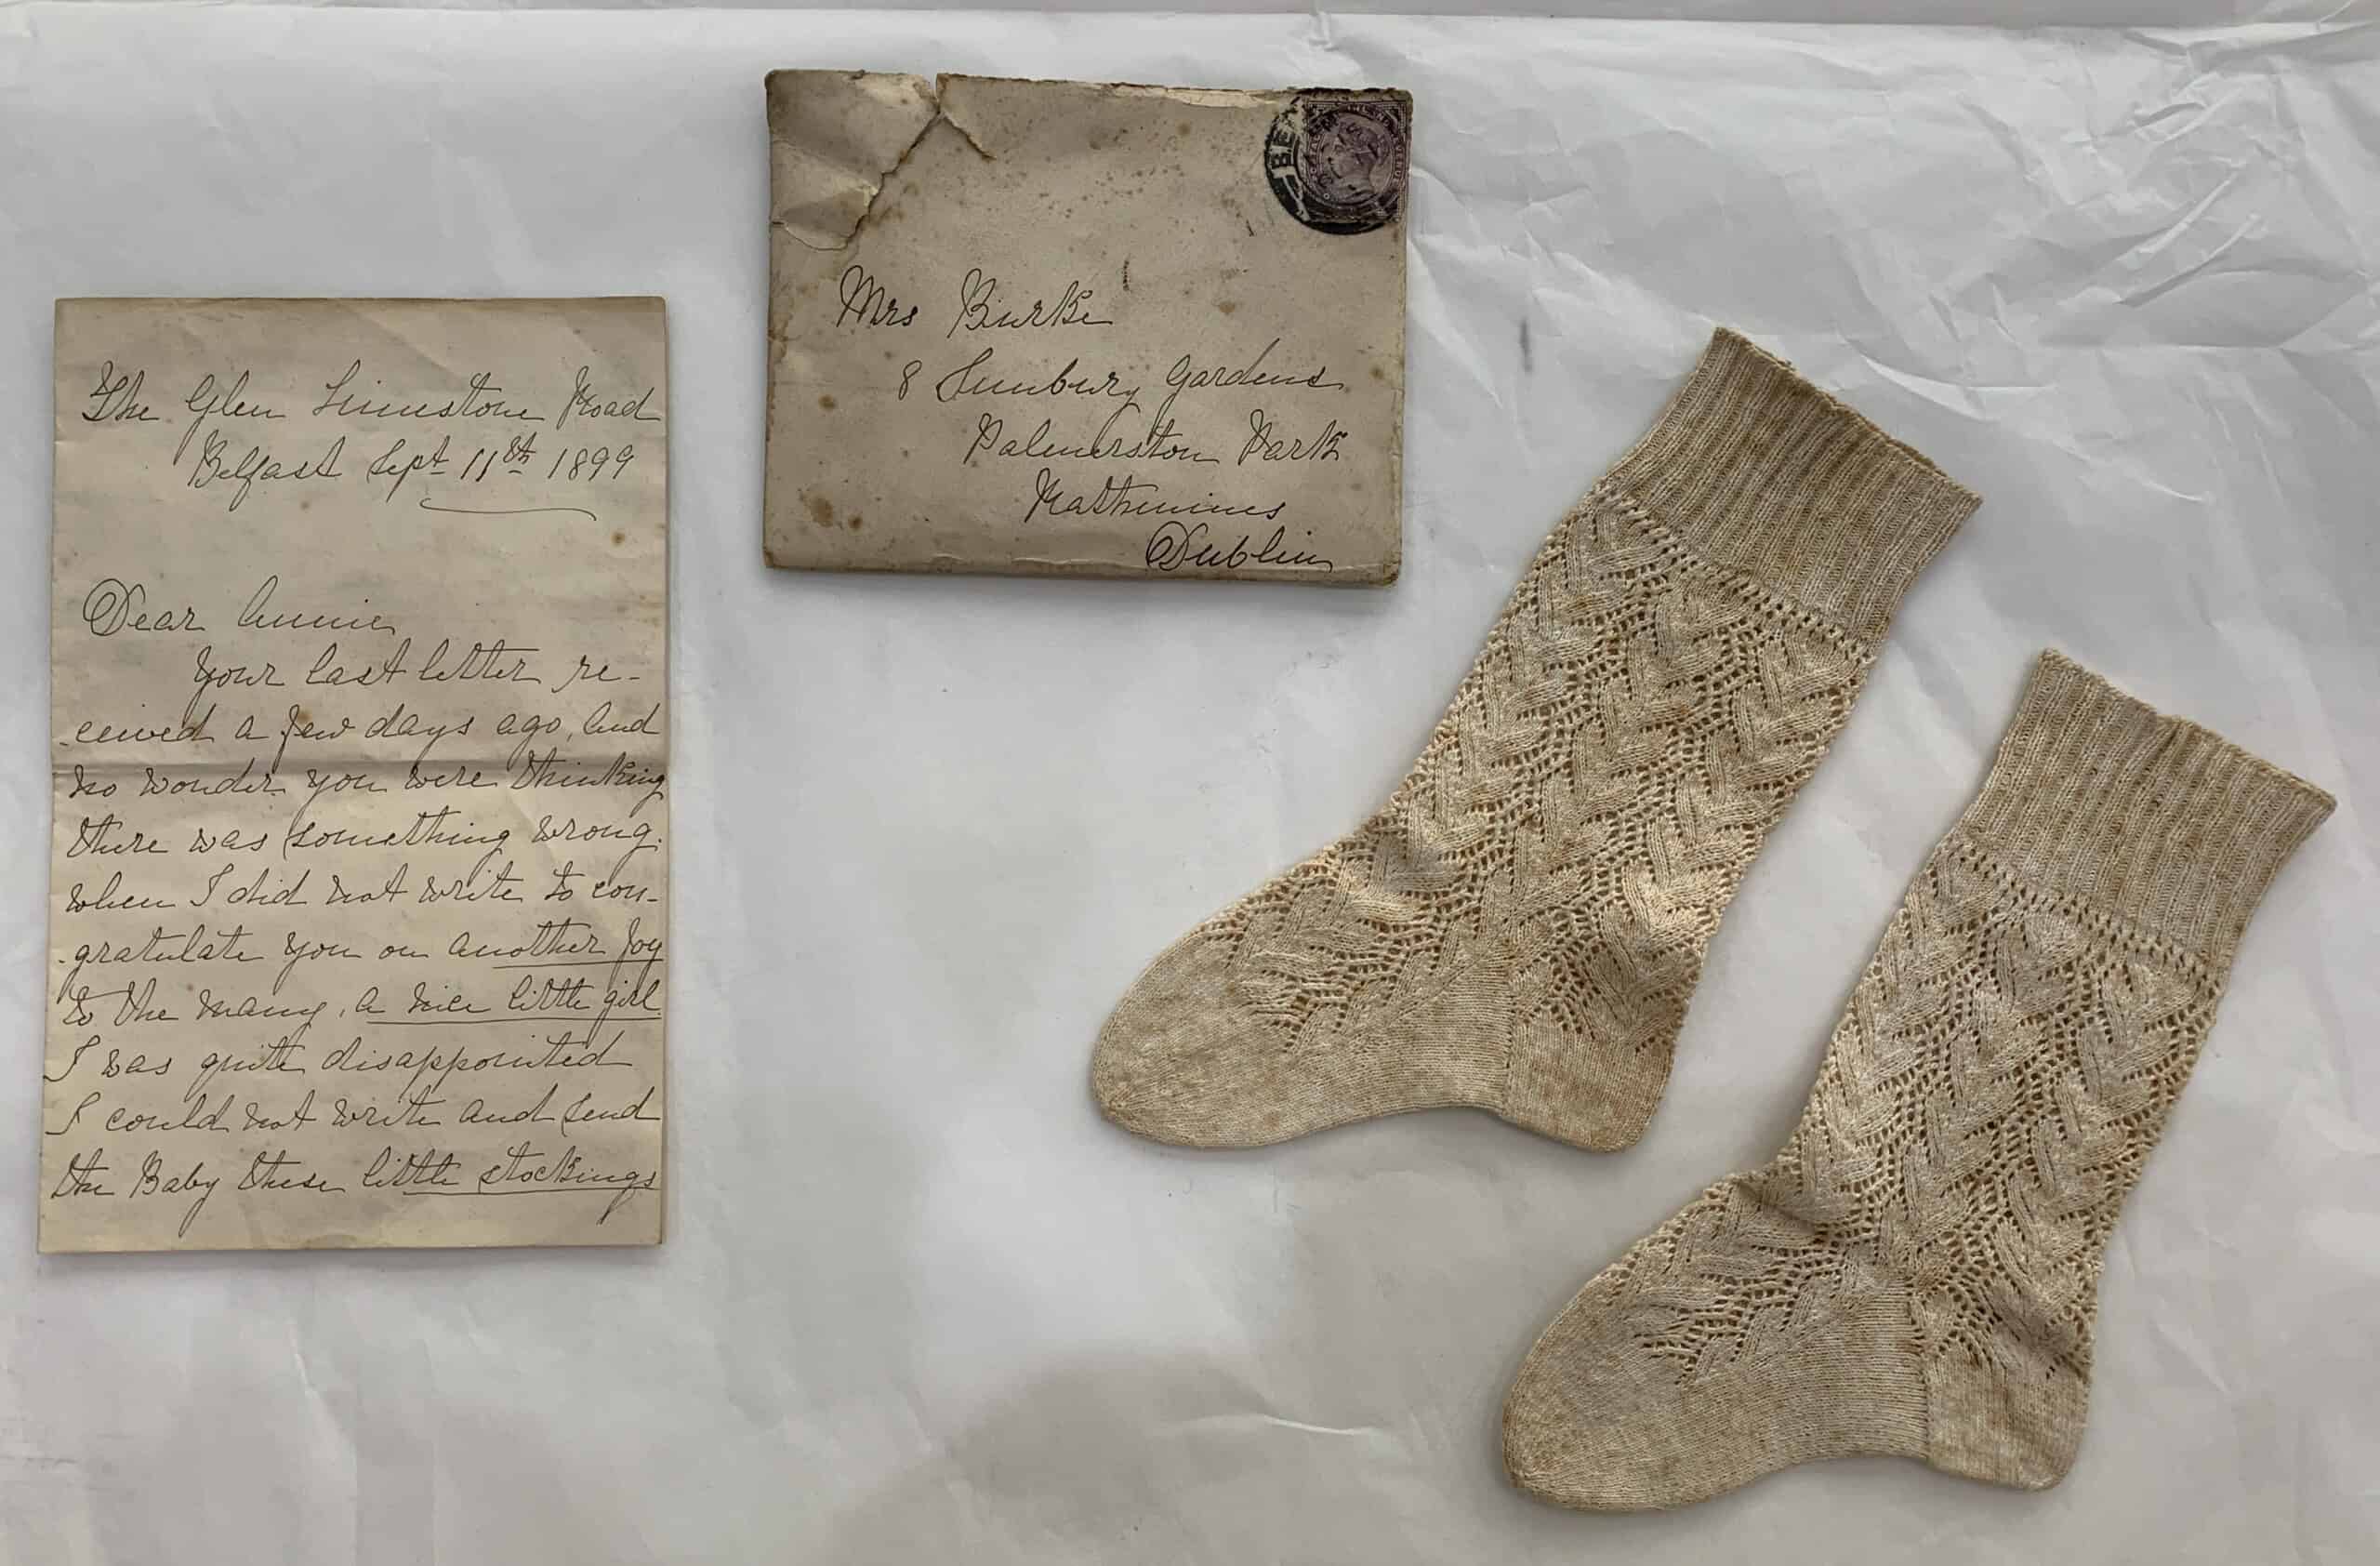 The Glen Limestone Road
Belfast Sept 11th 1899
Dear Annie
Your last letter re-
-ceived a few days ago, and
no wonder you were thinking
there was something wrong.
when I did not write to con-
-gratulate you on another joy
to the many, a nice little girl.
I was quite disappointed
I could not write and send
the Baby these little stockings
Mrs Burke
8 Sunbury Gardens
Palmerston Park
Rathmines
Dublin